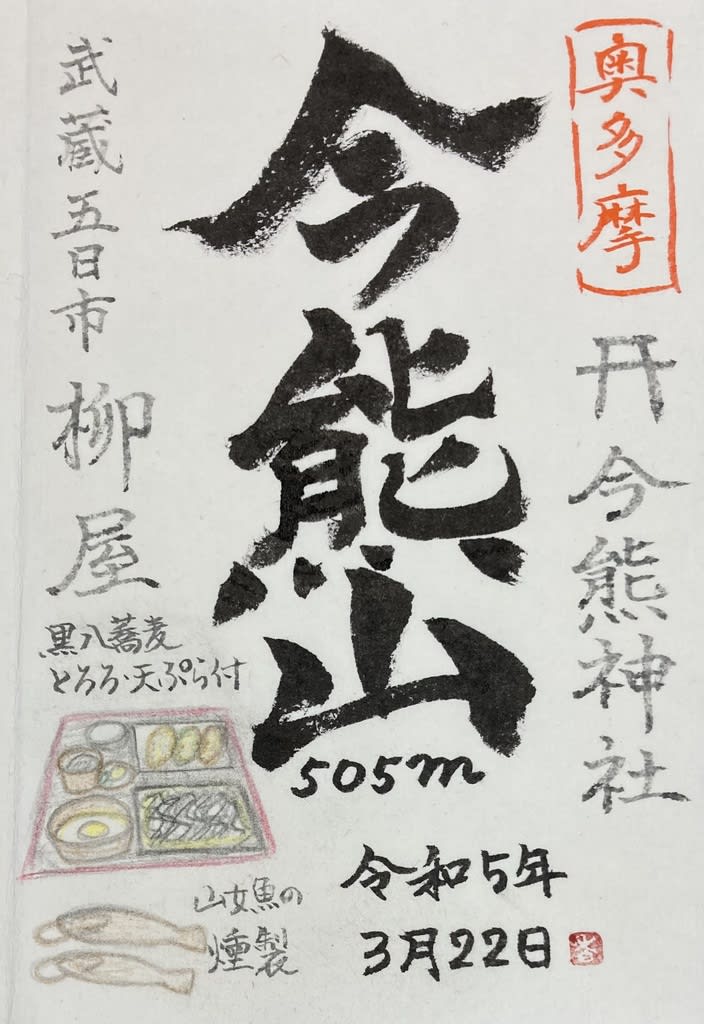 奥多摩
今熊神社
今熊山
505m
令和5年
3月22日
武蔵五日市 柳屋
黒八蕎麦
とろろ・天ぷら付
山女魚の
燻製